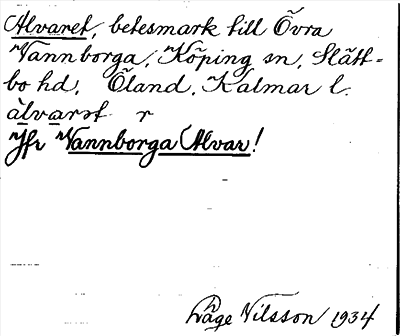 Alvaret, betesmark till Övra
Vannborga, Köping sn, Slätt-
bo hd, Öland, Kalmar l.
àlvarət r
Jfr Vannborga Alvar!
Dage Nilsson 1934